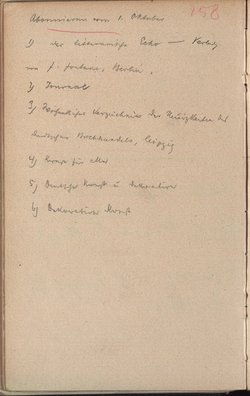 Abonnieren vom 1. Oktober
158
1) das litterarische Echo — Verlag
von F. Fontane, Berlin.
2) Journal
3) Wöchentliches Verzeichnis der Neuigkeiten des
deutschen Buchhandels, Leipzig
4) Kunst für alle
5) Deutsche Kunst u Dekoration
6) Dekorative Kunst